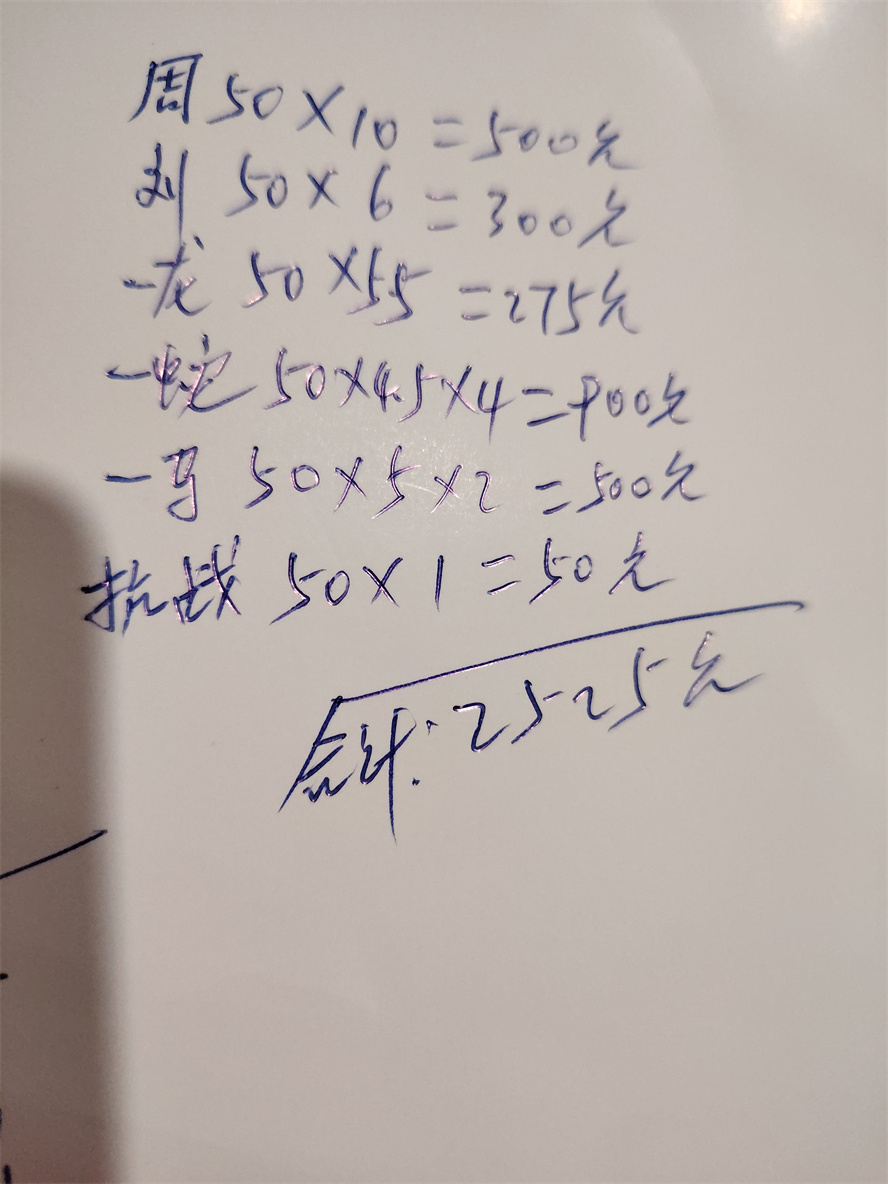 周50×10=500元
刘 50×6=300元
一龙 50×55=275元
一蛇 50×4.5×4=900元
一马 50×5×2=500元
抗战 50×1=50元
合计:2525元